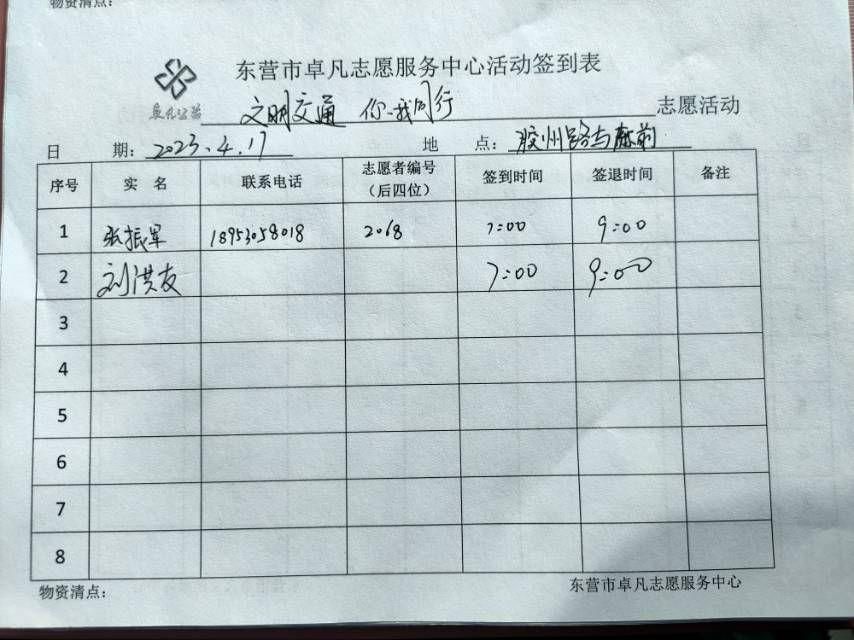 物资清点：
东营市卓凡志愿服务中心活动签到表
卓凡公益 文明交通 你我同行 志愿活动
日 期：2023.4.17 地 点：胶州路与
序号 实 名 联系电话 志愿者编号（后四位） 签到时间 签退时间 备注
1 张振军 18953058018 2068 7:00 9:00
2 刘洪友 7:00 9:00
3
4
5
6
7
8
物资清点： 东营市卓凡志愿服务中心